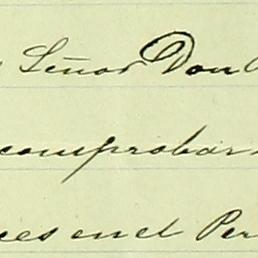 Señor Don
comprobar
en el Per